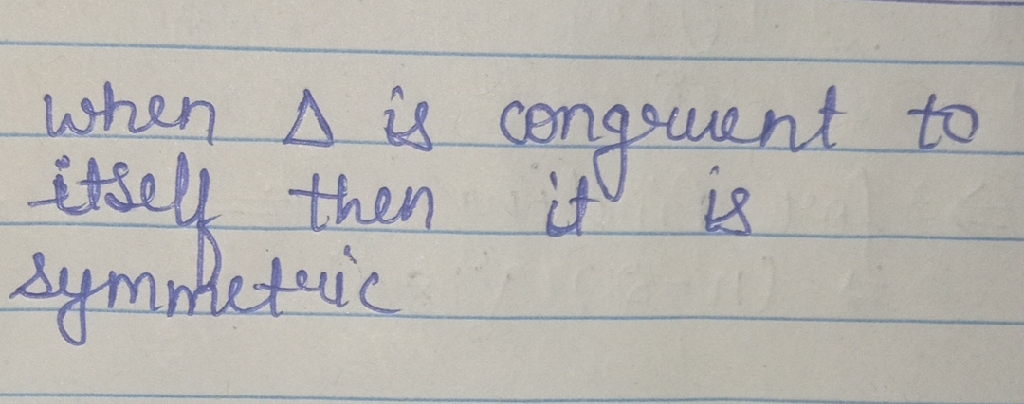 when Δ is congruent to
itself then it is
symmetric